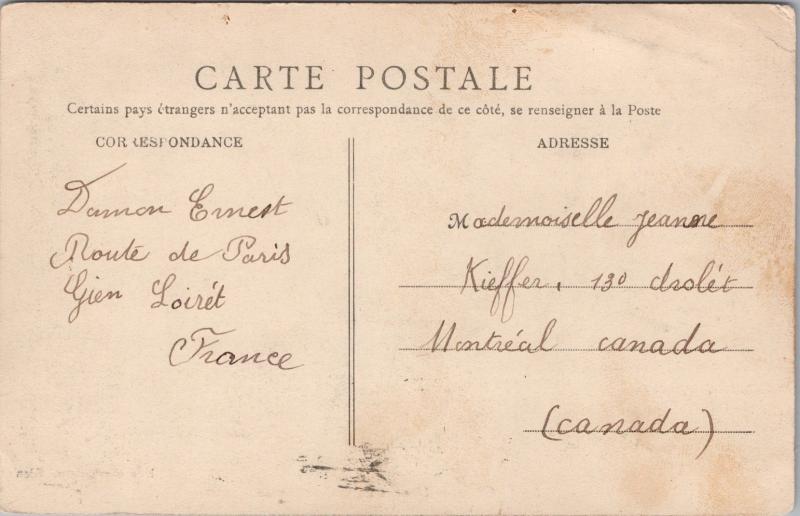 CARTE POSTALE
Certains pays étrangers n'acceptant pas la correspondance de ce côté, se renseigner à la Poste
CORRESPONDANCE
Damon Ernest
Route de Paris
Gien Loirét
France
ADRESSE
Mademoiselle Jeanne
Kieffer, 130 drolét
Montréal canada
(canada)